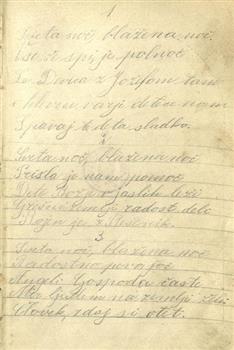 1
Sveta noč, blažena noč
Vse že spi, je polnoč
Le Devica z Jožefom tam
V hlevu varje detice nam
Spavaj le dete sladko.
2
Sveta noč, blažena noč
Prišla je nam pomoč
Dete Božje v jaslih leži
radost deli
je
3
Sveta noč, blažena noč
Radostno pevajoč
Angeli Gospoda časte
Mir ljudem na zemlji
Človek, zdaj si otet.